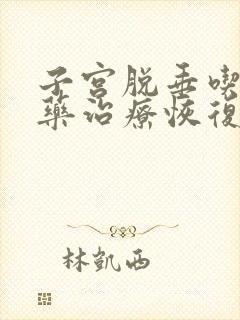 子宮脱垂喫
藥治療恢復
林凱西